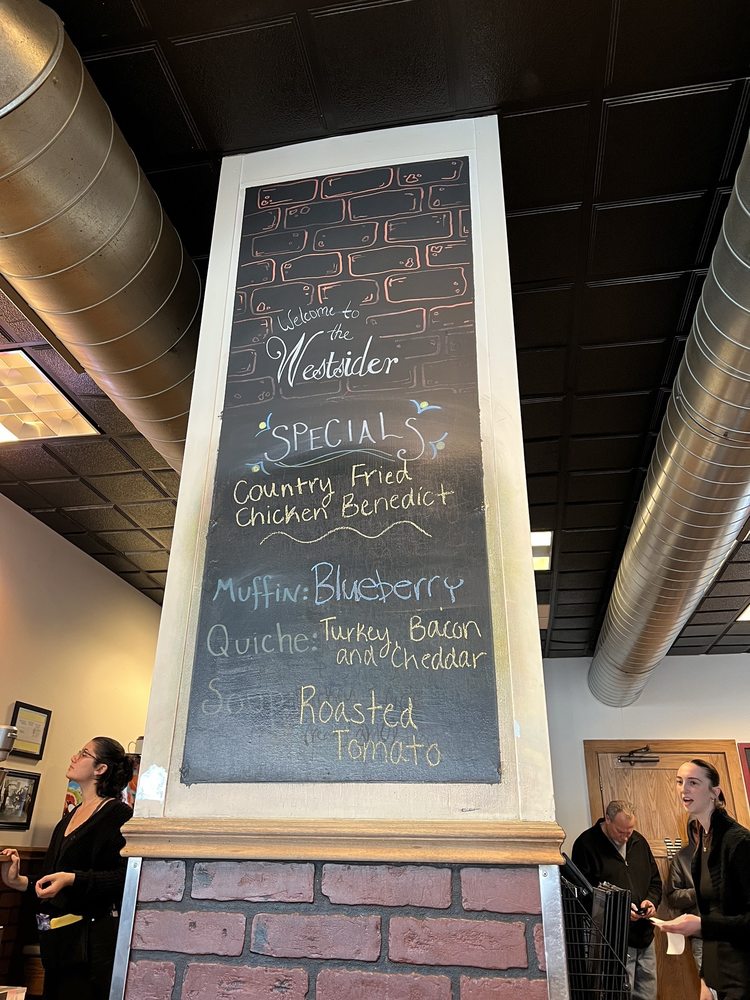 Welcome to
the
Westsider
SPECIALS
Country Fried
Chicken Benedict
Muffin: Blueberry
Quiche: Turkey, Bacon
and Cheddar
Soup
Roasted
Tomato